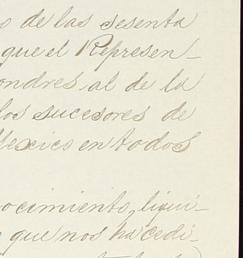 s de las sesenta
que el Represen-
ondres, al de la
los sucesores de
Mexico en todos
ocimiento, liqui-
que nos ha cedi-